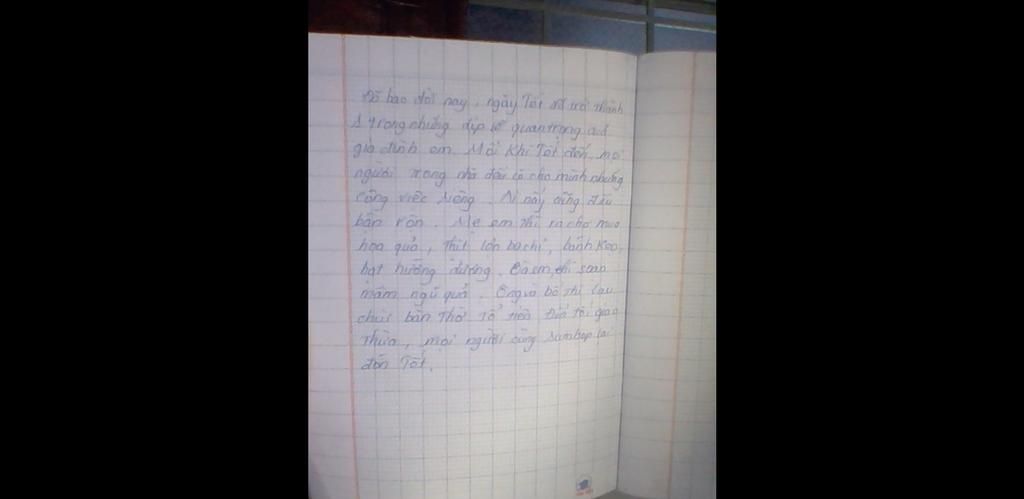 Đã bao đời nay, ngày Tết đã trở thành
1 trong những dịp lễ quan trọng của
gia đình em. Mỗi khi Tết đến, mọi
người trong nhà đều có cho mình những
công việc riêng. Ai nấy cũng đều
bận rộn. Mẹ em thì ra chợ mua
hoa quả, thịt lợn ba chỉ, bánh kẹo,
hạt hướng dương. Bà em, thì soạn
mâm ngũ quả. Ông và bố thì lau
chùi bàn thờ tổ tiên. Đến tối giao
thừa, mọi người cùng sum họp lại
đón Tết.